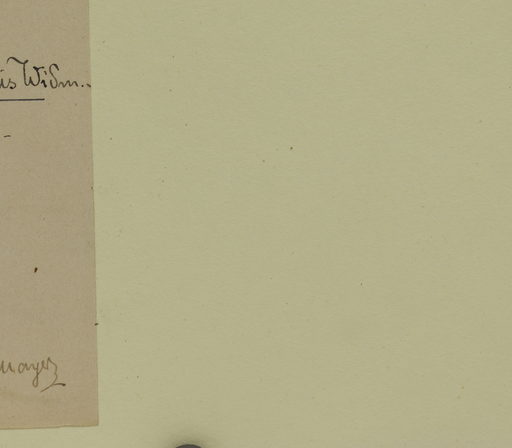 is Widm..
mayer